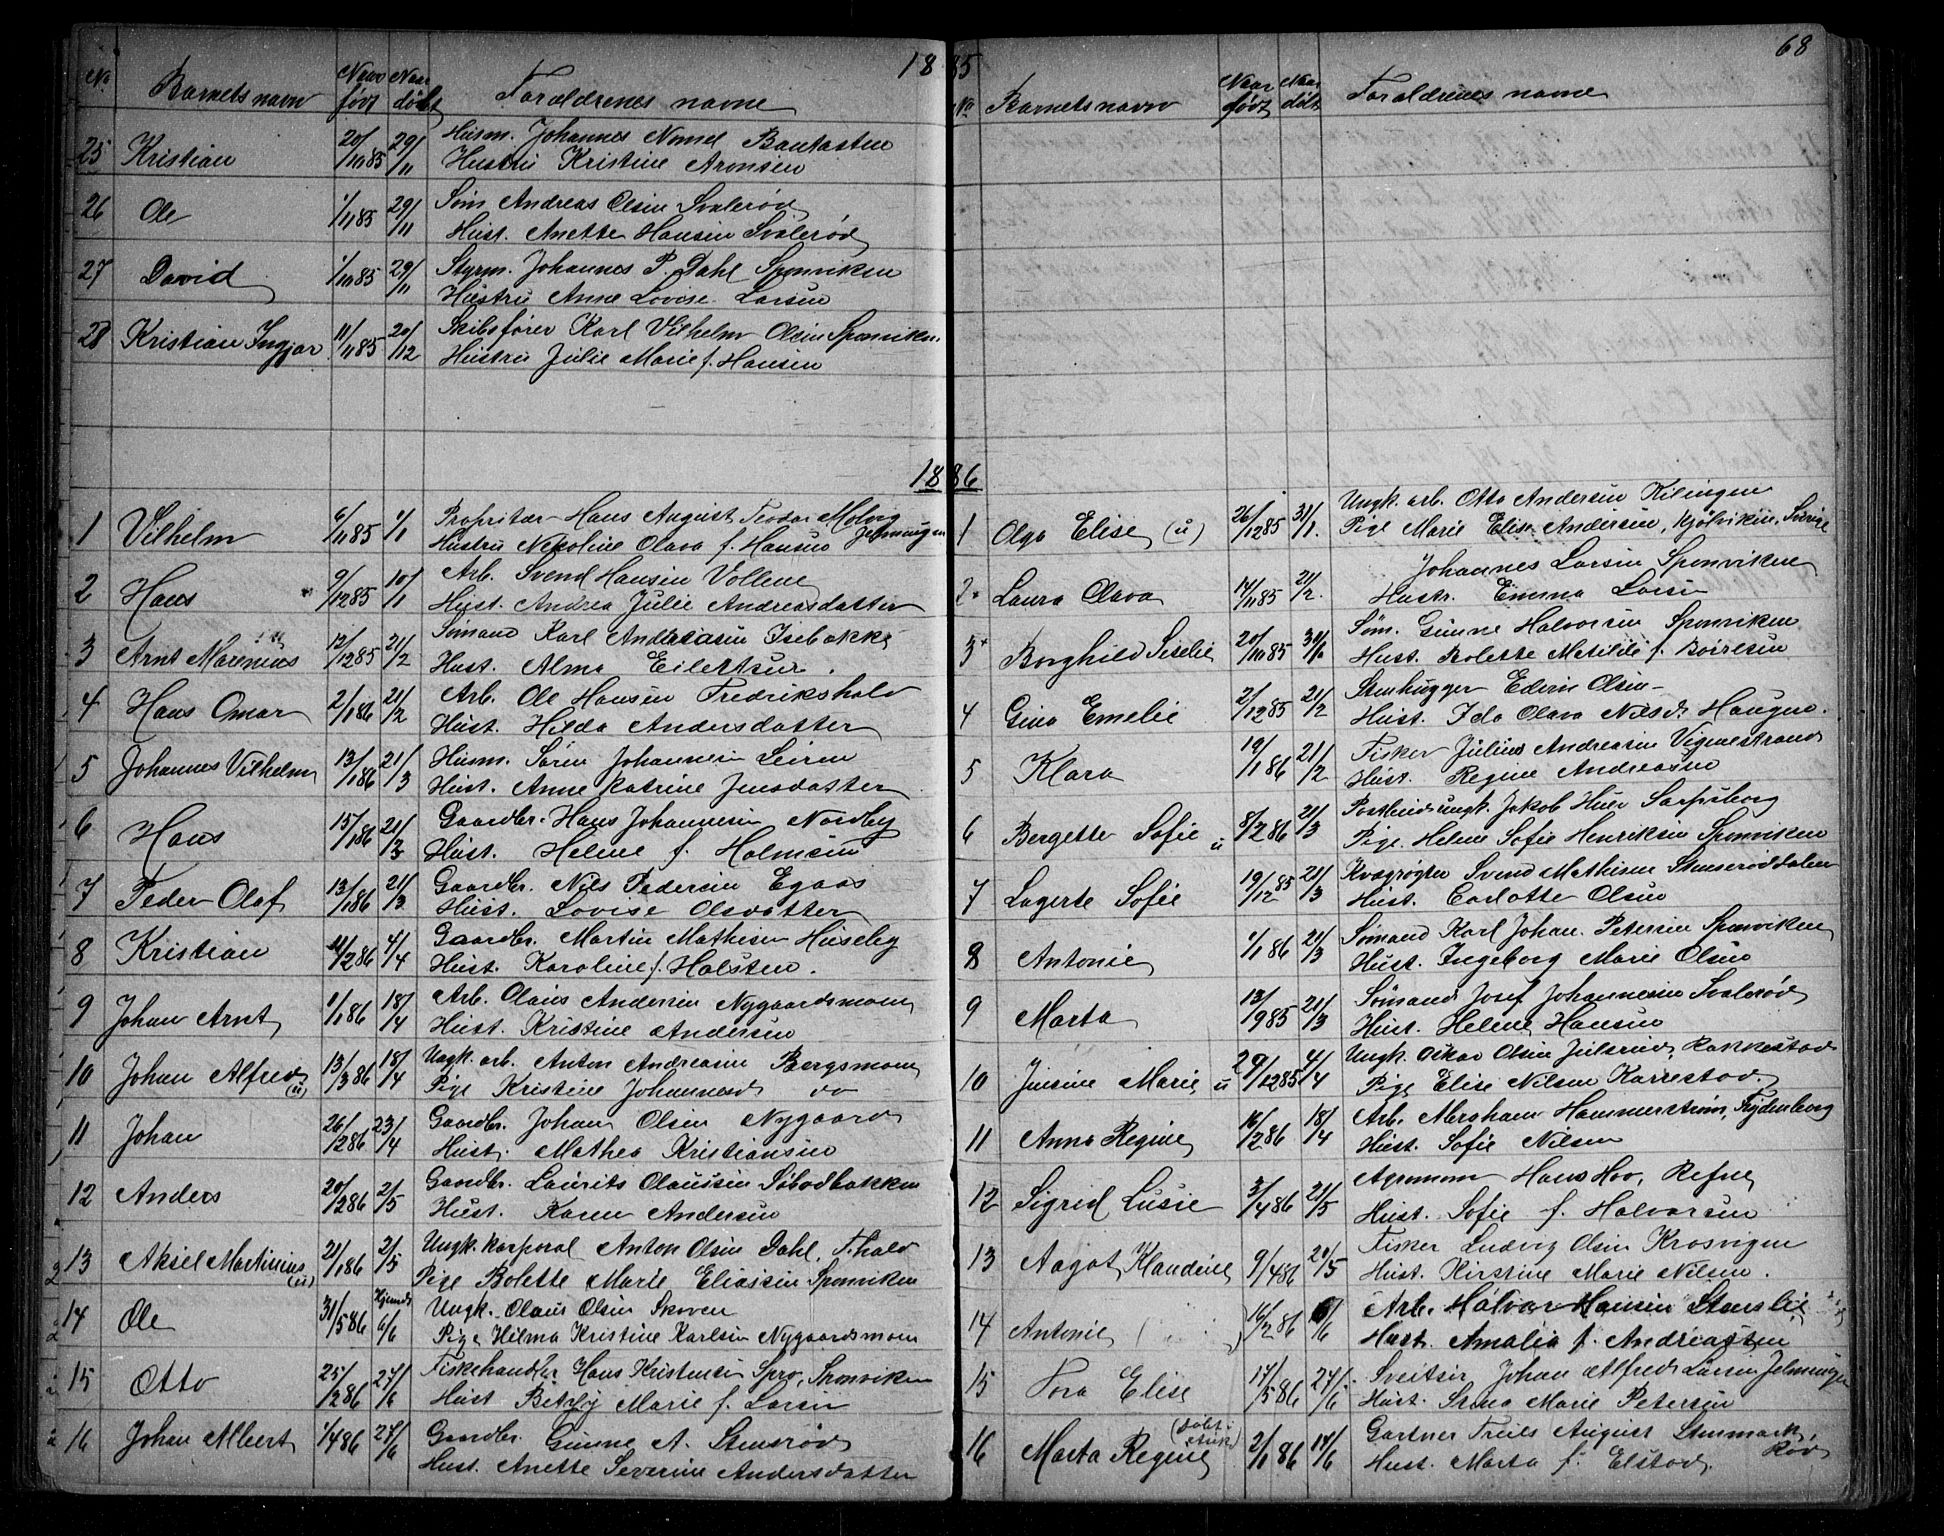 1885
68
No Barnets navn Naar født Naar døbt Forældrenes navne
25 Kristian 20/10 85 29/11 Husm. Johannes Nomel Bautasten
Hustru Kristine Aronsen
26 Ole 1/11 85 29/11 Søm. Andreas Olsen Svalerød
Hust. Anette Hansen Svalerød
27 David 1/10 85 29/11 Styrm. Johannes P. Dahl Sponviken
Hustru Anne Lovise Larsen
28 Kristian Ingvar 11/11 85 20/12 Skibsfører Karl Vilhelm Olsen Sponviken
Hustru Julie Marie f. Hansen
1886
1 Vilhelm 6/11 85 1/1 Propritær Hans August Teodor Molvig
Hustru Nikoline Olava f. Hansen
2 Hans 9/12 85 10/1 Arb. Svend Hansen Vollene
Hust. Andrea Julie Andreasdatter
3 Arnt Marenius 12/12 85 21/2 Sømand Karl Andreasen Isebakke
Hust. Alma Eilertsen.
4 Hans Omar 2/1 86 21/2 Arb. Ole Hansen Fredrikshald
Hust. Hilda Andersdatter
5 Johannes Vilhelm 13/1 86 21/3 Husm. Søren Johannesen Leiren
Hust. Anne Katrine Jensdatter
6 Hans 15/1 86 21/3 Gaardbr. Hans Johannesen Nordby
Hust. Helene f. Holmsen
7 Peder Olaf 13/1 86 21/3 Gaardbr. Nils Pedersen Egaas
Hust. Lovise Olsdatter
8 Kristian 4/2 86 4/4 Gaardbr. Martin Mathisen Huseby
Hust. Karoline f. Holsten.
9 Johan Arnt 1/1 86 18/4 Arb. Olaus Andersen Nygaardsmoen
Hust. Kristine Andersen
10 Johan Alfred (u) 13/3 86 18/4 Ungk. arb. Anton Andreasen Bergsmoen
Pige Kristine Johannesd do
11 Johan 26/2 86 23/4 Gaardbr. Johan Olsen Nygaard
Hust. Mathea Kristiansen
12 Anders 20/2 86 2/5 Gaardbr. Laurits Olaussen Søbodbakken
Hust. Karen Andersen
13 Aksel Martinius (u) 21/1 86 2/5 Ungk. Korporal Anton Olsen Dahl, F.hald
Pige Bolette Marie Eliassen Sponviken
14 Ole 31/5 86 Hjemd 6/6 Ungk. Olaus Olsen Skoven
Pige Hilma Kristine Karlsen Nygaardsmoen
15 Otto 25/2 86 27/6 Fiskehandler Hans Kristensen Spro, Sponviken
Hust Betzy Marie f. Larsen
16 Johan Albert 1/4 86 27/6 Gaardbr. Gunne A. Stensrød
Hust. Anette Severine Andersdatter
No Barnets navn Naar født Naar døbt Forældrenes navne
1 Olga Elise (u) 26/12 85 31/1. Ungk. arb. Otto Andersen Kilingen
Pige Marie Elise Andersen, Kjølviken, Sverige
2 Laura Olava 14/11 85 21/2. Johannes Larsen Sponviken
Hustr. Emma Larsen
3 Borghild Siselie 20/10 85 Søm. Gunne Halvorsen Sponviken
Hust. Bolette Matilde f. Børresen
4 Gina Emelie 2/12 85 21/2 Stenhugger Edvin Olsen
Hust. Ida Olava Nilsd. Haugen.
5 Klara 19/1 86 21/2 Fisker Julius Andreasen Vigenestrand
Hust. Regine Andreasen
6 Bergette Sofie u 8/2 86 21/3 Postbud ungk. Jakob Sarpsborg
Pige. Helene Sofie Henriksen Sponviken
7 Lagerte Sofie 19/12 85 21/3 Kvægrøgter Svend Mathisen Stenserøddalen
Hust. Carlotte Olsen
8 Antonie 1/1 86 21/3 Sømand Karl Johan Petersen Sponviken
Hust. Ingeborg Marie Olsen
9 Marta 13/9 85 21/3 Sømand Josef Johannesen Svalerød
Hust. Helene Hansen
10 Jensine Marie u 29/12 85 4/4 Ungk. Oskar Olsen Julsrud, Rakkestad
Pige Elise Nilsen Karrestad.
11 Anna Regine 16/2 86 18/4 Arb. Abraham Hammerstrøm, Frydenborg
Hust. Sofie Nilsen
12 Sigrid Lusie 3/4 86 21/5 Agronom Hans Hov, Refne
Hust. Sofie f. Halvorsen
13 Aagot Klaudine 9/4 86 20/5 Fisker Ludvig Olsen Krosvigen
Hust. Kirstine Marie Nilsen.
14 Antonie 16/2 86 6/6 Arb. Halvor Hansen Stenslie
Hust. Amalia f. Andreassen
15 Tora Elise 17/5 86 27/6 Sveitser Johan Alfred Larsen
Hust. Stina Marie Petersen
16 Marta Regine 2/1 86 14/6 Gartner Truls August Stenmark, Rød
Hust. Marta f. Elstad.